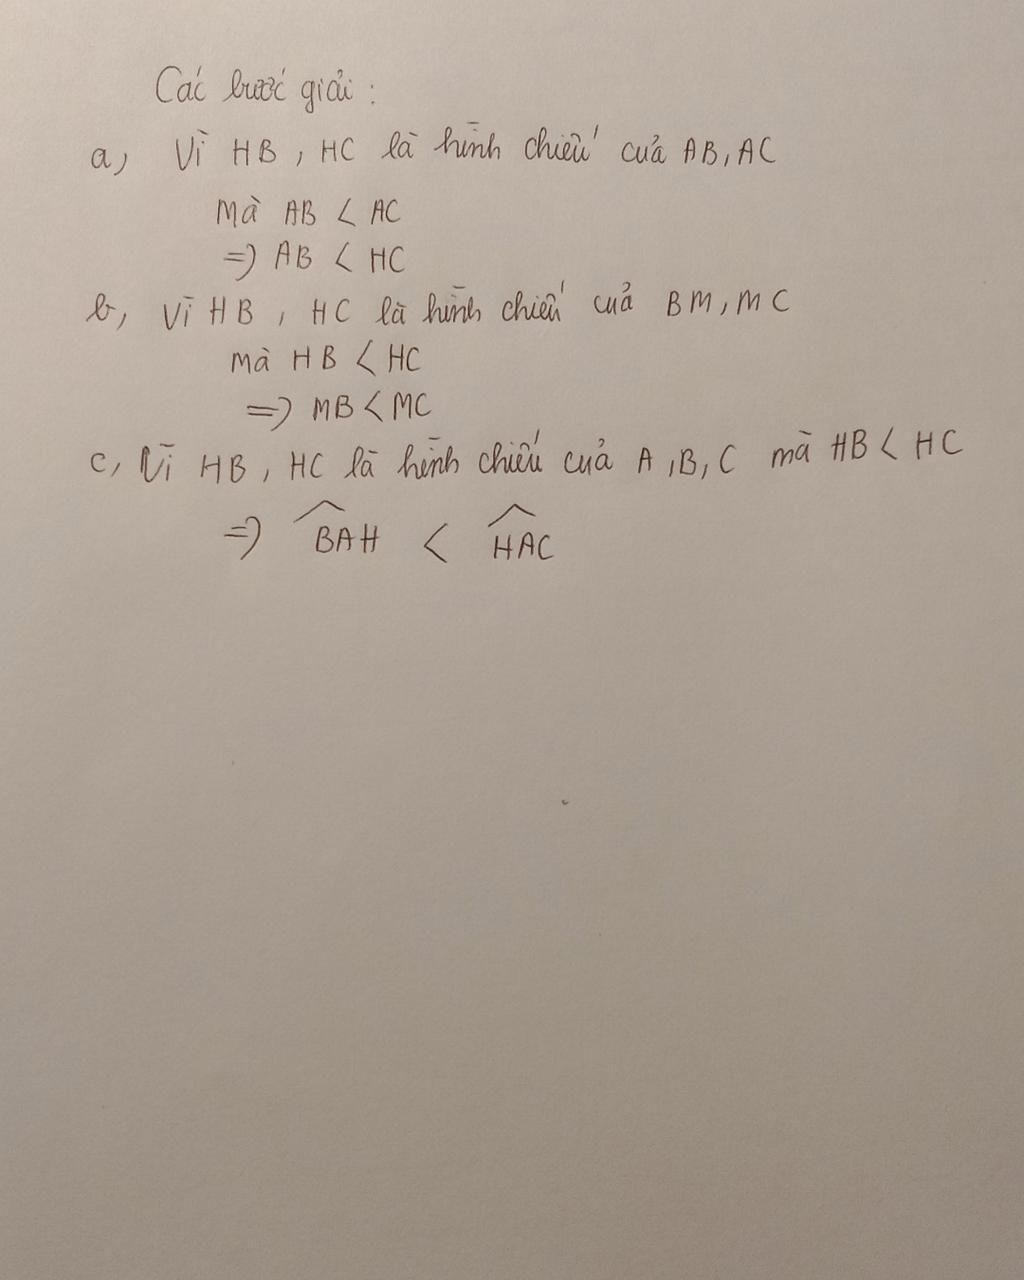 Các bước giải :
a, Vì HB, HC là hình chiếu của AB, AC
Mà AB < AC
=> AB < HC
b, Vì HB, HC là hình chiếu của BM, MC
mà HB < HC
=> MB < MC
c, Vì HB, HC là hình chiếu của A, B, C mà HB < HC
=> \widehat{BAH} < \widehat{HAC}